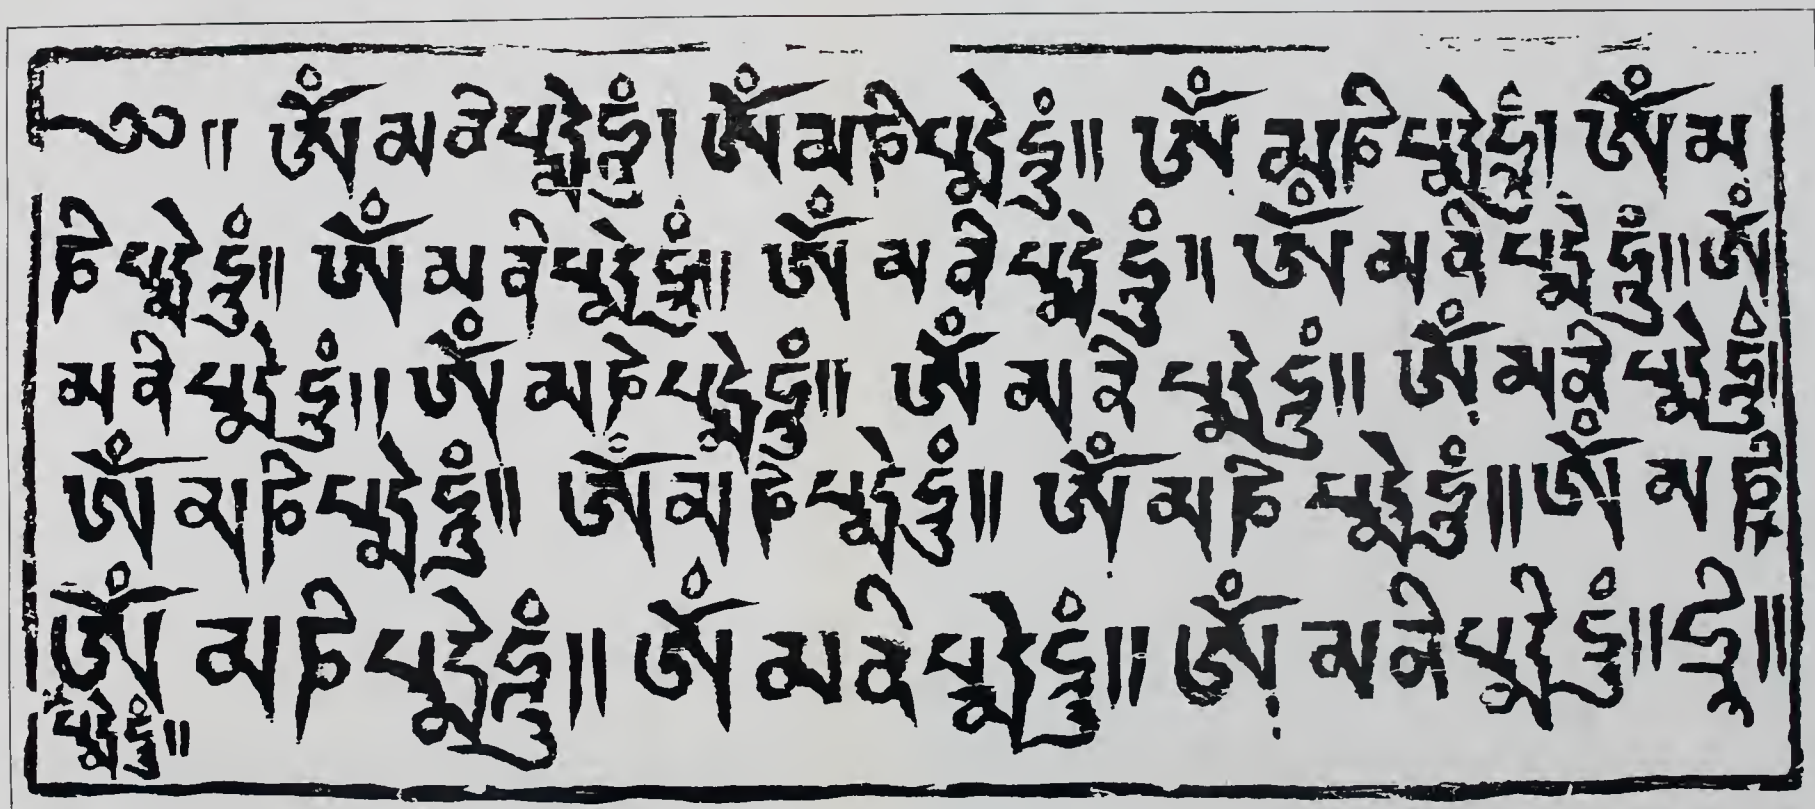 ༄༎ ཨོཾམནིཔདྨེཧཱུྃ། ཨོཾམཎིཔདྨེཧཱུྃ༎ ཨོཾམཎིཔདྨེཧཱུྃ། ཨོཾམ
ཎིཔདྨེཧཱུྃ༎ ཨོཾམནིཔདྨེཧཱུྃ༎ ཨོཾམནིཔདྨེཧཱུྃ༎ ཨོཾམནིཔདྨེཧཱུྃ༎ཨོཾ
མནིཔདྨེཧཱུྃ༎ ཨོཾམཎིཔདྨེཧཱུྃ༎ ཨོཾམནིཔདྨེཧཱུྃ༎ ཨོཾམནིཔདྨེཧཱུྃ།
ཨོཾམཎིཔདྨེཧཱུྃ༎ ཨོཾམཎིཔདྨེཧཱུྃ༎ ཨོཾམཎིཔདྨེཧཱུྃ༎ཨོཾམཎི
ཨོཾམཎིཔདྨེཧཱུྃ༎ ཨོཾམནིཔདྨེཧཱུྃ༎ ཨོཾམནིཔདྨེཧཱུྃ༎ཧྲི༎
པདྨེཧཱུྃ༎